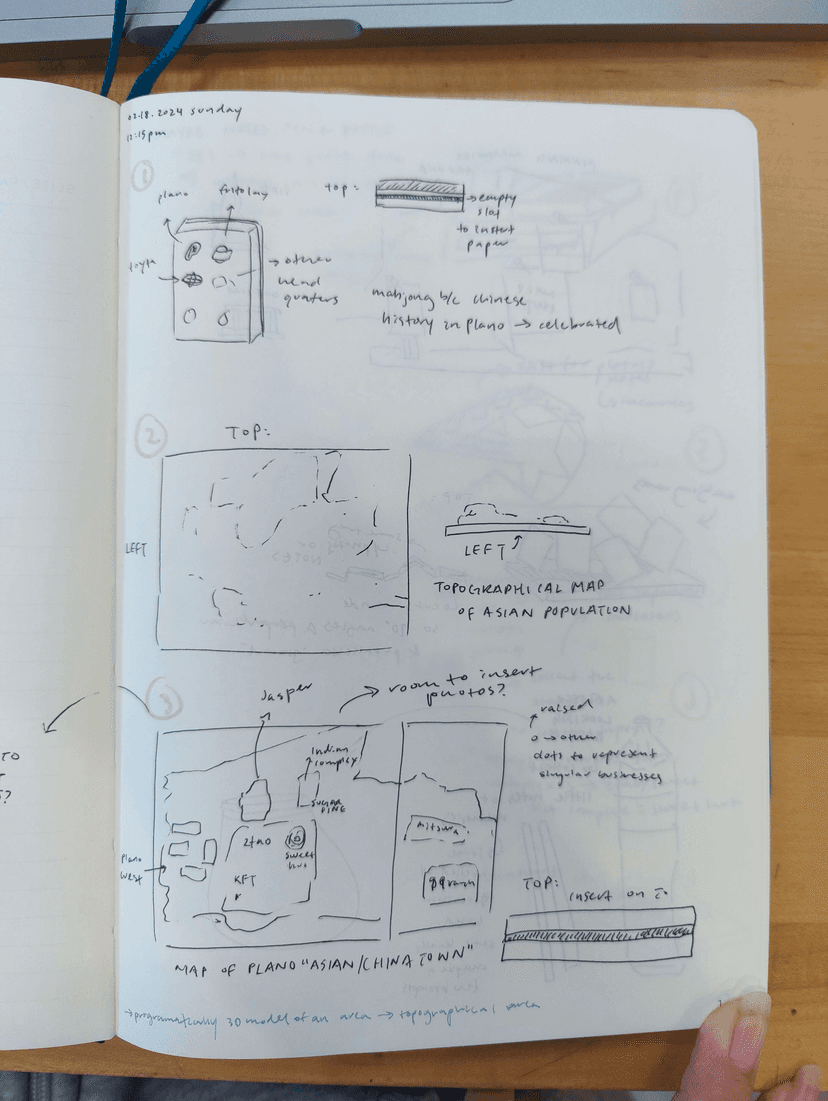 02.18.2024 sunday
12:15pm
1
plano
fritolay
toyta
→ other
head
quarters
top:
→ empty
slot
to insert
paper
mahjong b/c chinese
history in plano → celebrated
2
TOP:
LEFT
LEFT
TOPOGRAPHICAL MAP
OF ASIAN POPULATION
3
Jasper
→ room to insert
photos?
Indian
complex
SUGAR
PINE
ztao
sweet
KFT
plano
west
mitsuwa
99 ranch
raised
o → other
dots to represent
singular businesses
TOP:
insert on
MAP OF PLANO "ASIAN/CHINATOWN"
→ programatically 3D model of an area → topographical area
TO
?